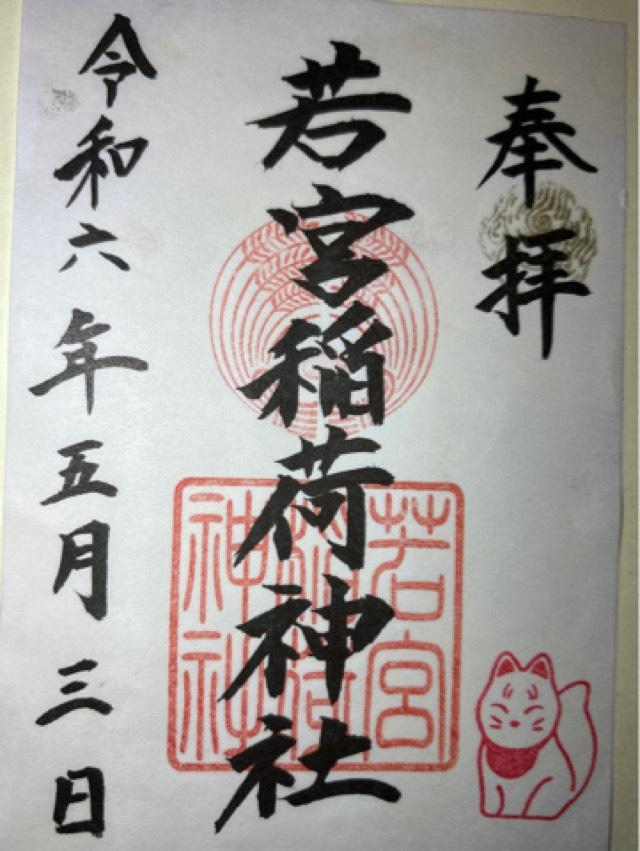 奉拝
若宮稲荷神社
若宮稲荷神社
令和六年五月三日